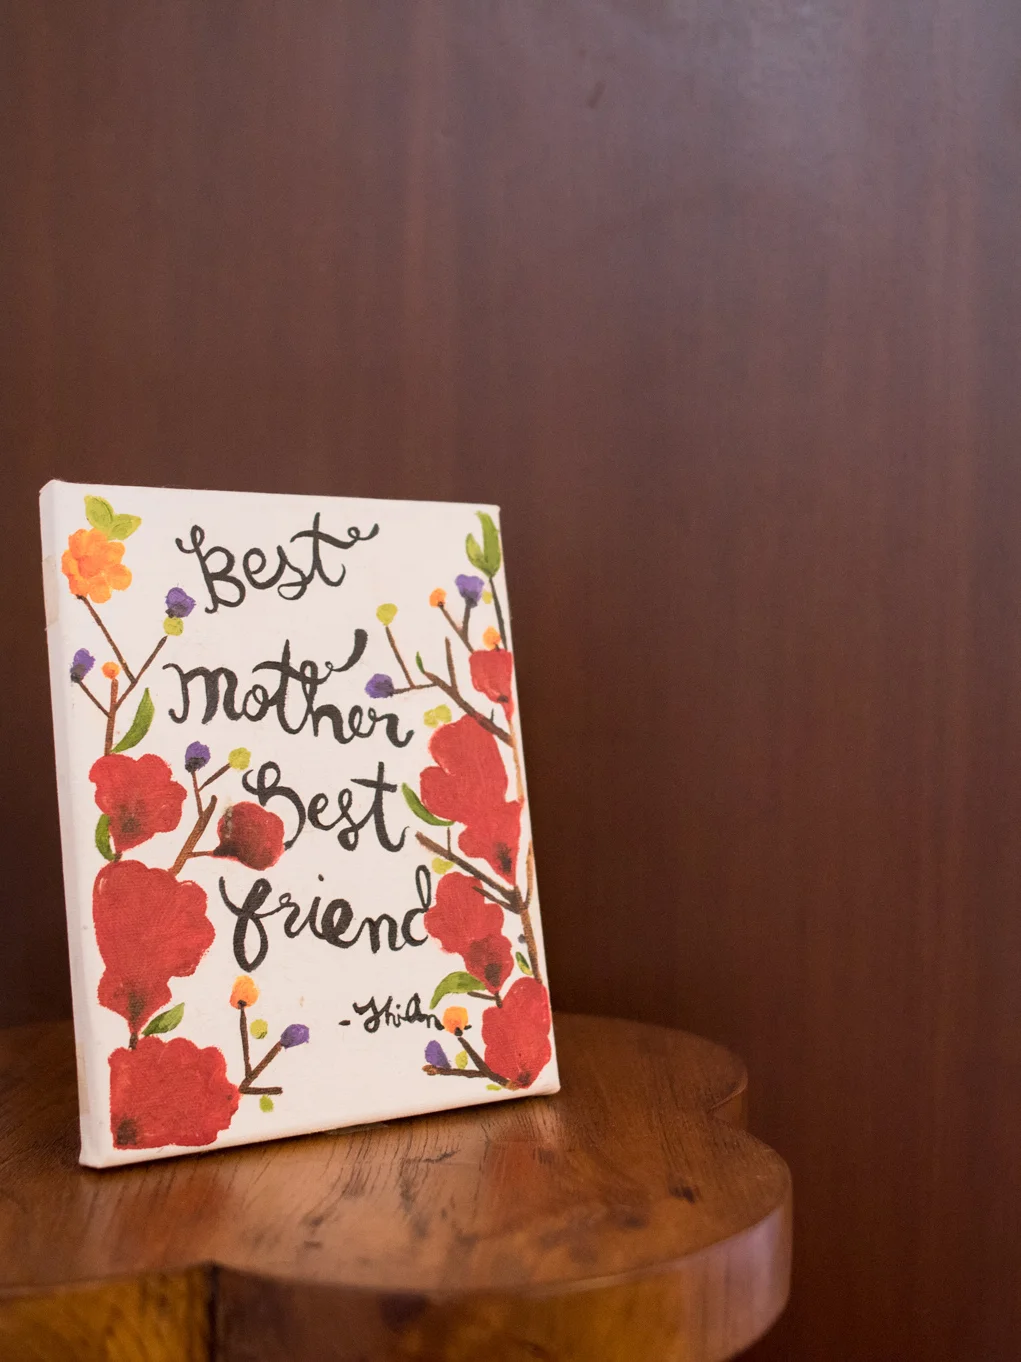 Best
mother
Best
friend